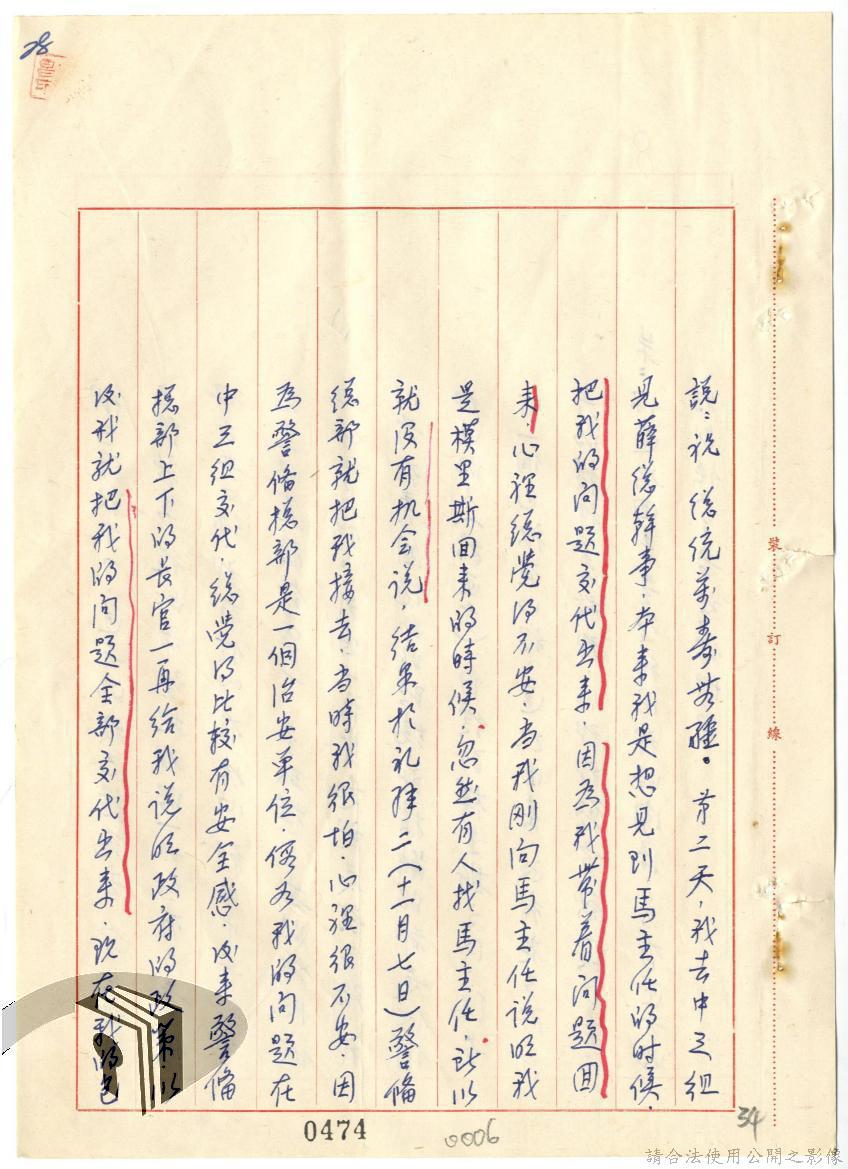 28
說：祝 總统萬壽無疆。第二天，我去中三组
見薛總幹事，本来我是想見到馬主任的时候，
把我的问题交代出来，因為我带着问题回
来，心裡總覺得不安，当我刚向馬主任说明我
是模里斯回来的時候，忽然有人找馬主任，所以
就没有机会说，结果於礼拜二（十一月七日）警备
總部就把我接去，当時我很怕，心裡很不安，因
為警备總部是一個治安单位，倘若我的问题在
中三组交代，總覺得比较有安全感，後来警備
總部上下的长官一再给我说明政府的政策，所以
後我就把我的问题全部交代出来，现在我的包
裝
訂
線
0474
0006
34
請合法使用公開之影像